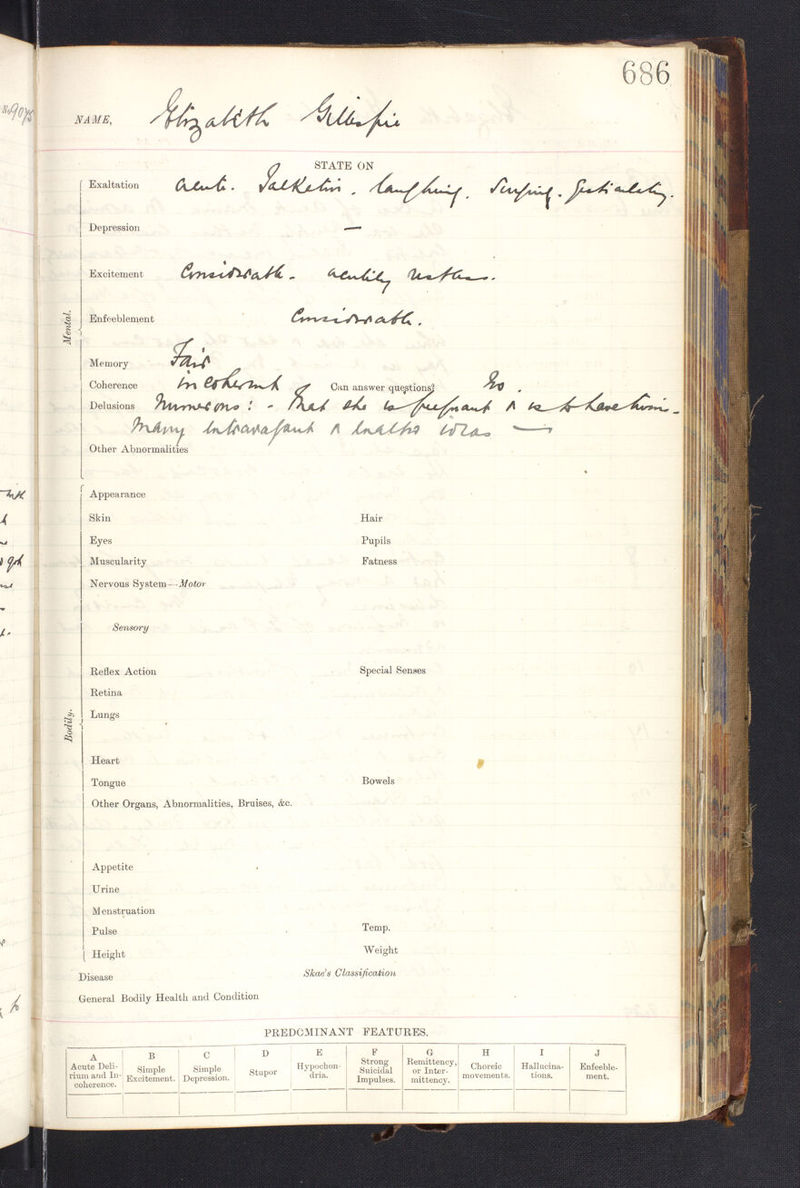 686
NAME, Elizabeth Gillespie
STATE ON
Exaltation Acute. Talkative. laughing. Singing. gesticulating.
Depression —
Excitement Considerable. acutely restless.
Mental.
Enfeeblement Considerable.
Memory Fair
Coherence incoherent Can answer questions? No.
Delusions Numerous: - That she is pregnant & is to have twins -
Many extravagant & exalted ideas —
Other Abnormalities
Appearance
Skin Hair
Eyes Pupils
Muscularity Fatness
Nervous System—Motor
Sensory
Reflex Action Special Senses
Retina
Bodily.
Lungs
Heart
Tongue Bowels
Other Organs, Abnormalities, Bruises, &c.
Appetite
Urine
Menstruation
Pulse Temp.
Height Weight
Disease Skae's Classification
General Bodily Health and Condition
PREDOMINANT FEATURES.
A B C D E F G H I J
Acute Delirium and Incoherence. Simple Excitement. Simple Depression. Stupor Hypochondria. Strong Suicidal Impulses. Remittency, or Intermittency. Choreic movements. Hallucinations. Enfeeblement.